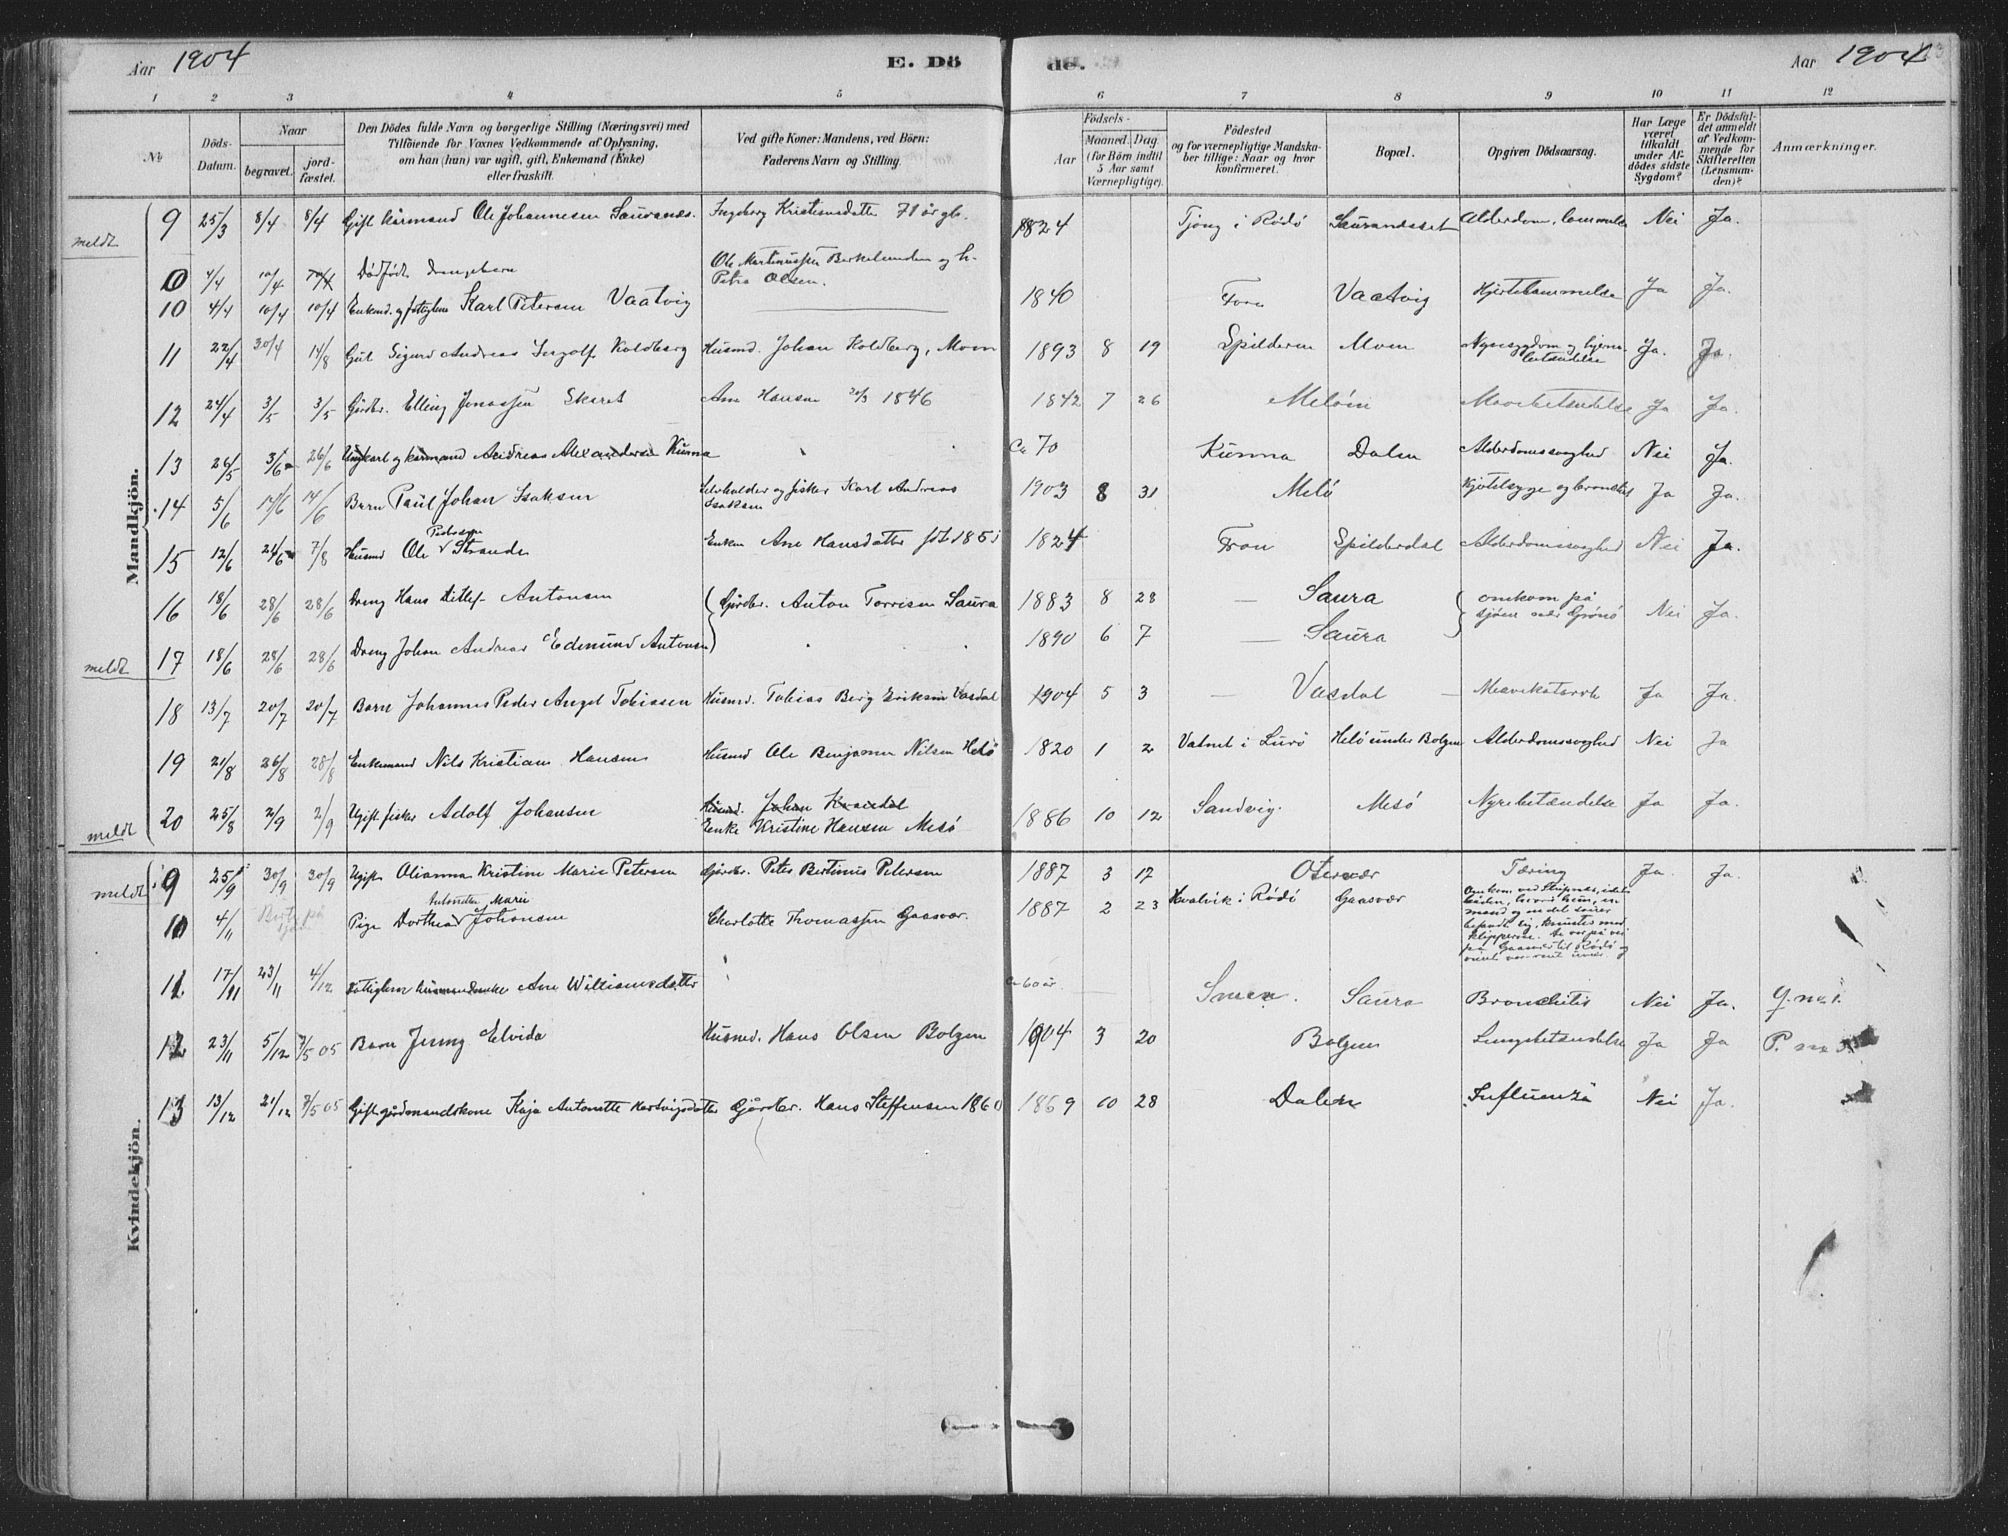 Aar 1904 E. Döde. Aar 1904
1 2 3 4 5 6 7 8 9 10 11 12
No
Döds-Datum.
Naar
begravet.
jordfæstet.
Den Dödes fulde Navn og borgerlige Stilling (Næringsvei) med
Tilföiende for Voxnes Vedkommende af Oplysning,
om han (hun) var ugift, gift, Enkemand (Enke)
eller fraskilt.
Ved gifte Koner: Mandens, ved Börn:
Faderens Navn og Stilling.
Födsels-
Aar
Maaned. Dag.
(for Börn indtil
5 Aar samt
Værnepligtige).
Födested
og for værnepligtige Mandskaber tillige: Naar og hvor
konfirmeret.
Bopæl.
Opgiven Dödsaarsag.
Har Læge
været
tilkaldt
under Afdödes sidste
Sygdom?
Er Dödsfaldet anmeldt
af Vedkommende for
Skifteretten
(Lensmanden)?
Anmærkninger.
Mandkjön.
meldt 9 25/3 8/4 8/4 Gift kårmand Ole Johannesen Saurandss. Ingeborg Kristensdatter 71 år gl. 1824 Tjong i Rödö Saurandsset Alderdom, Nei Ja.
0 4/4 10/4 10/4 Dödfödt drengebarn Ole Martinussen Berkelunden og h.
Petra Olsen.
10 4/4 10/4 10/4 Enkemd. og fattiglem Karl Petersen Vaatvig 1840 Foro Vaatvig Hjertelammelse Ja Ja.
11 22/4 30/4 14/8 Gut Sigurd Andreas Ingolf Koldberg Husmd. Johan Koldberg, Moen 1893 8 19 Spilderen Moen Nyresygdom og hjerne-
betændelse Ja. Ja.
12 24/4 3/5 3/5 Gårdbr. Elling Jonassen Skaret Ane Hansen 20/3 1846 1842 7 26 Melöen Mavebetændelse Ja Ja.
13 26/5 3/6 26/6 Ungkarl og kårmand Andreas Alexandersen Kunna Ca 70 Kunna Dalen Alderdomssvaghed Nei Ja.
14 5/6 17/6 17/6 Barn Paul Johan Isaksen Selvholder og fisker Karl Andreas
Isaksen 1903 8 31 Melö Kjertelsyge og bronchit Ja Ja.
15 12/6 24/6 7/8 Husmd Ole Pedersen Strande Enkem Ane Hansdatter föd 1851 1824 Fron Spilderdal Alderdomssvaghed Nei Ja.
16 18/6 28/6 28/6 Dreng Hans Ditlef Antonsen Gårdbr. Anton Torrisen Saura 1883 8 28 — Saura omkom på
sjöen ved Grönö Nei Ja.
meldt 17 18/6 28/6 28/6 Dreng Johan Andreas Edmund Antonsen 1890 6 7 — Saura
18 13/7 20/7 20/7 Barn Johannes Peder Angel Tobiassen Husmd. Tobias Berg Eriksen Vasdal 1904 5 3 — Vasdal Mavekatarrh Ja Ja.
19 21/8 26/8 28/8 Enkemand Nils Kristian Hansen Husmd Ole Benjamin Nilsen Helö 1820 1 2 Vatnet i Lurö Helö under Bolgen Alderdomssvaghed Nei Ja
meldt 20 25/8 2/9 2/9 Ugift fisker Adolf Johansen Husmd. Johan
Enke Kristine Hansen Mesö 1886 10 12 Sandvig. Mesö Nyrebetændelse Ja Ja.
Kvindekjön.
meldt 9 25/9 30/9 30/9 Ugift Olianna Kristine Marie Petersen Gårdbr. Peter Bertinus Petersen 1887 3 17 Oterværær Tæring Ja. Ja.
10 4/11 Pige Dorthea Antonette Marie Johansen Charlotte Thomassen Gaasvær. 1887 2 23 Kvalvik i Rödö Gaasvær
11 17/11 23/11 4/12 Fattiglem husmandsenke Ane Williamsdatter Ca 60 år Saura Bronchitis Nei Ja.
12 23/11 5/12 7/5 05 Barn Jenny Elvida Husmd. Hans Olsen Bolgen 1904 3 20 Bolgen Lungebetændelse Ja Ja
13 13/12 21/12 7/5 05 Gift gårdmandskone Kaja Antonette Hartvigsdatter Gårdbr. Hans Steffensen 1860 1869 10 28 Dalen Influenza Nei Ja.